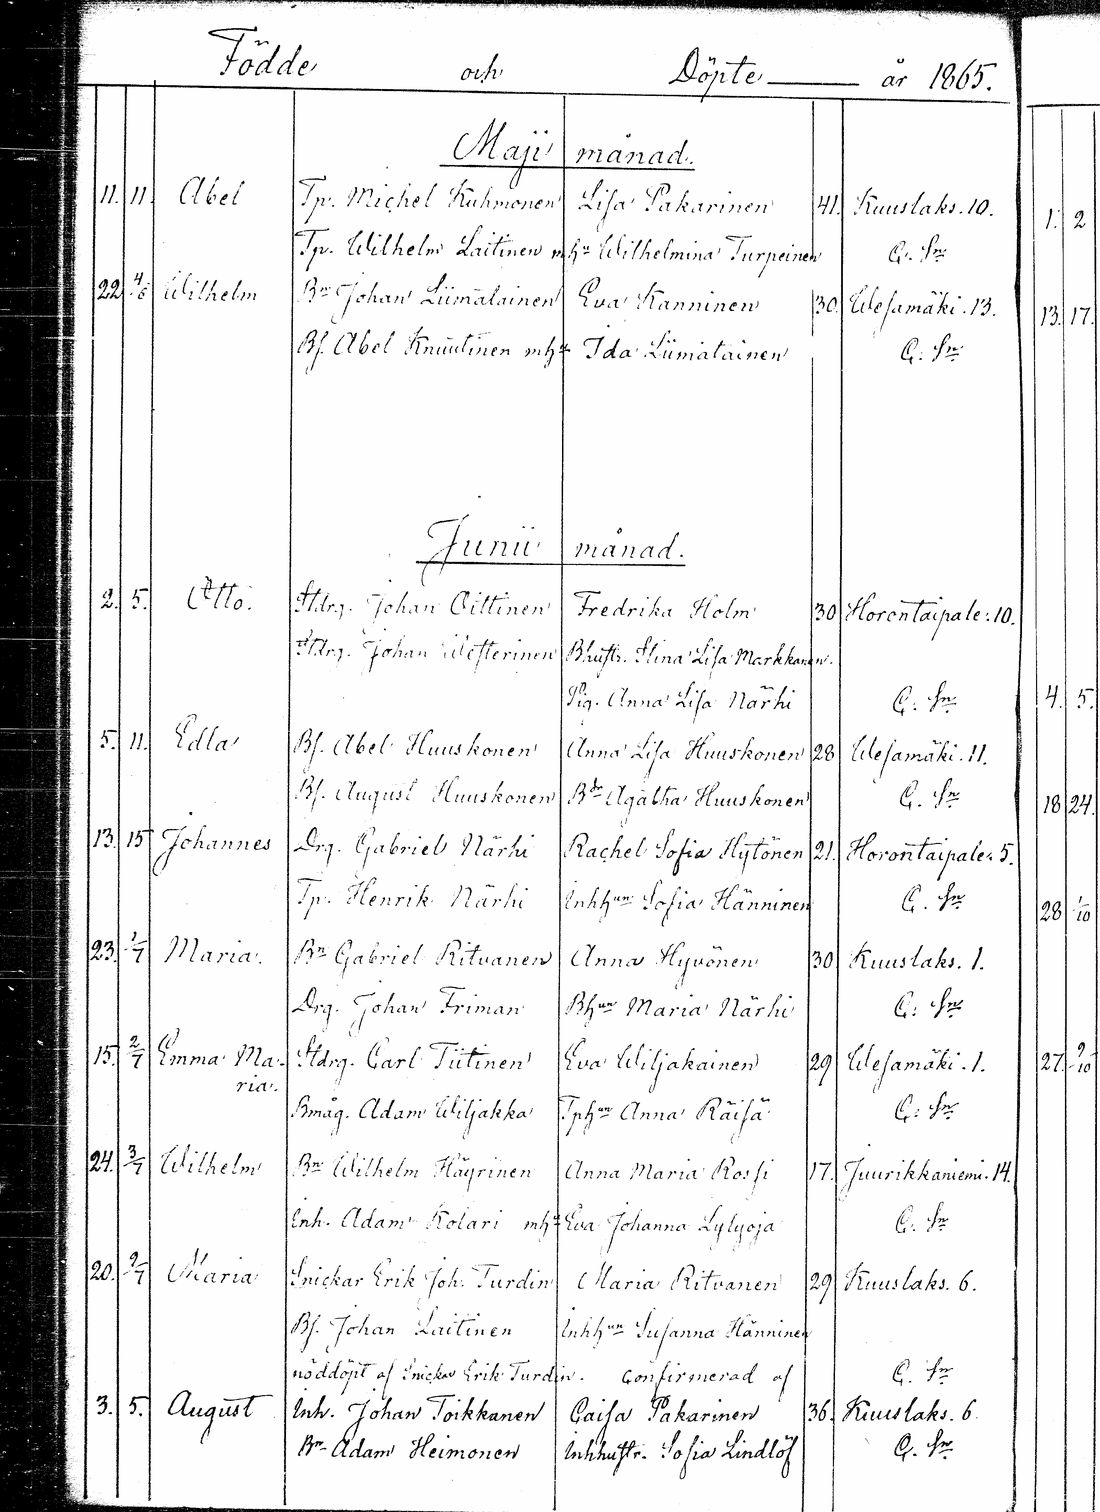 Födde och Döpte år 1865.
Maji månad.
11. 11. Abel Tp. Michel Kuhmonen Lisa Pakarinen 41. Kuuslaks. 10.
Tp. Wilhelm Laitinen mhu Wilhelmina Turpeinen G. Sn
22 4/6 Wilhelm Bn Johan Liimatainen Eva Kanninen 30. Wesamäki. 13.
Bs. Abel Knuutinen mhu Ida Liimatainen G. Sn
Junii månad.
2. 5. Otto. Stdrg. Johan Oittinen Fredrika Holm 30 Horontaipale. 10.
Stdrg. Johan Westerinen Bhustr. Stina Lisa Markkanen.
Pig. Anna Lisa Närhi G. Sn
5. 11. Edla Bs. Abel Huuskonen Anna Lisa Huuskonen 28 Wesamäki. 11.
Bs. August Huuskonen Bdr Agatha Huuskonen G. Sn
13. 15 Johannes Drg. Gabriel Närhi Rachel Sofia Hytönen 21. Horontaipale. 5.
Tp. Henrik Närhi Inhhun Sofia Hänninen G. Sn
23. 1/7 Maria. Bn Gabriel Ritvanen Anna Hyvönen 30 Kuuslaks. 1.
Drg. Johan Friman Bhun Maria Närhi G. Sn
15. 2/7 Emma Ma- Stdrg. Carl Tiitinen Eva Wiljakainen 29 Wesamäki. 1.
ria.
Bmåg. Adam Wiljakka Tphun Anna Räisä G. Sn
24. 3/7 Wilhelm Bn Wilhelm Häyrinen Anna Maria Rossi 17. Juurikkaniemi. 14.
Inh. Adam Kolari mhu Eva Johanna Lylyoja G. Sn
20. 9/7 Maria Snickar Erik Joh. Turdin Maria Ritvanen 29 Kuuslaks. 6.
Bs. Johan Laitinen Inhhun Susanna Hänninen
nöddöpt af Snickar Erik Turdin. Confirmerad af G. Sn
3. 5. August Inh. Johan Toikkanen Caisa Pakarinen 36. Kuuslaks. 6.
Bn Adam Heimonen Inhhustr. Sofia Lindlöf G. Sn
1. 2
13. 17.
4. 5.
18 24.
28 1/10
27. 9/10